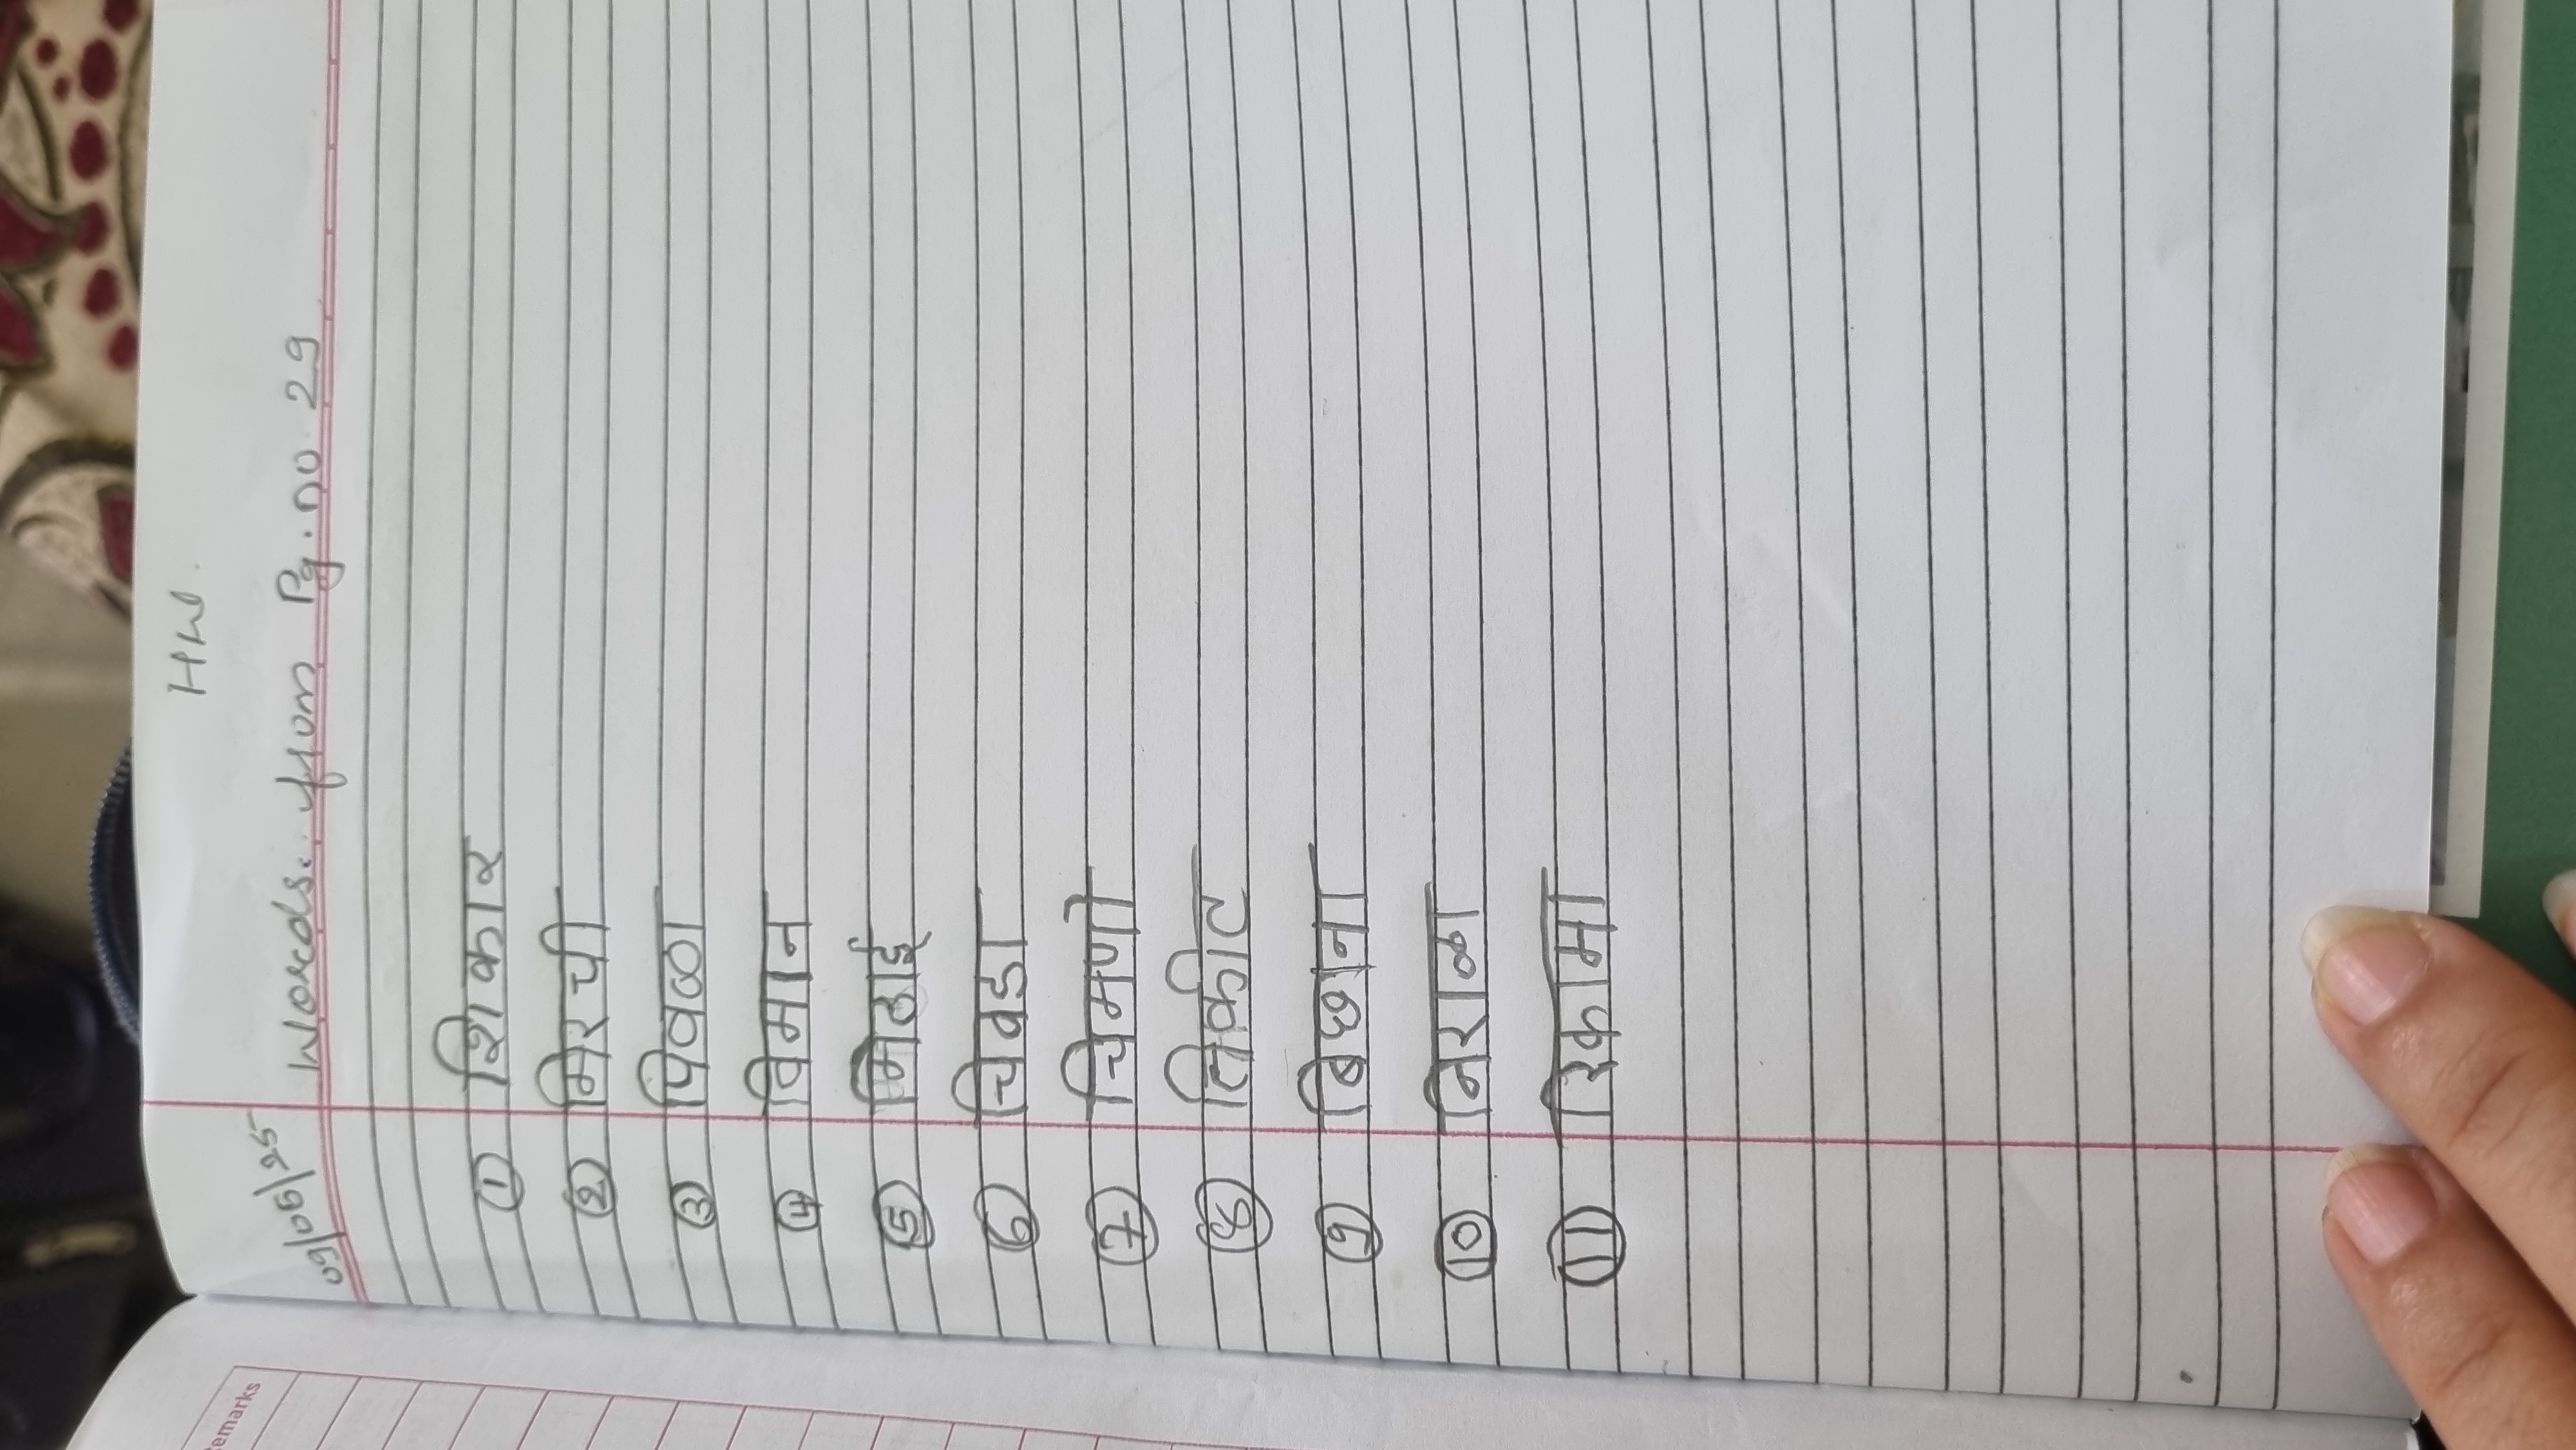 HW.
09/06/25 Words.. from Pg.no.29
① शिकार
② मिरची
③ पिवळा
④ विमान
⑤ मिठाई
⑥ चिवडा
⑦ चिमणी
⑧ तिकीट
⑨ बिछाना
⑩ निराळा
⑪ रिकामा